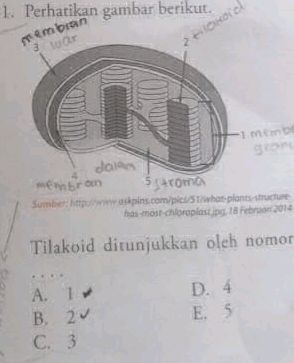 1. Perhatikan gambar berikut.
membran
3 luar
2 tilakoid
1
dalam
4
membran
5 stroma
Sumber: http://www.askpins.com/pics/51/what-plants-structure-
has-most-chloroplast.jpg, 18 Februari 2014
Tilakoid ditunjukkan oleh nomor
. . . .
A. 1
D. 4
B. 2
E. 5
C. 3